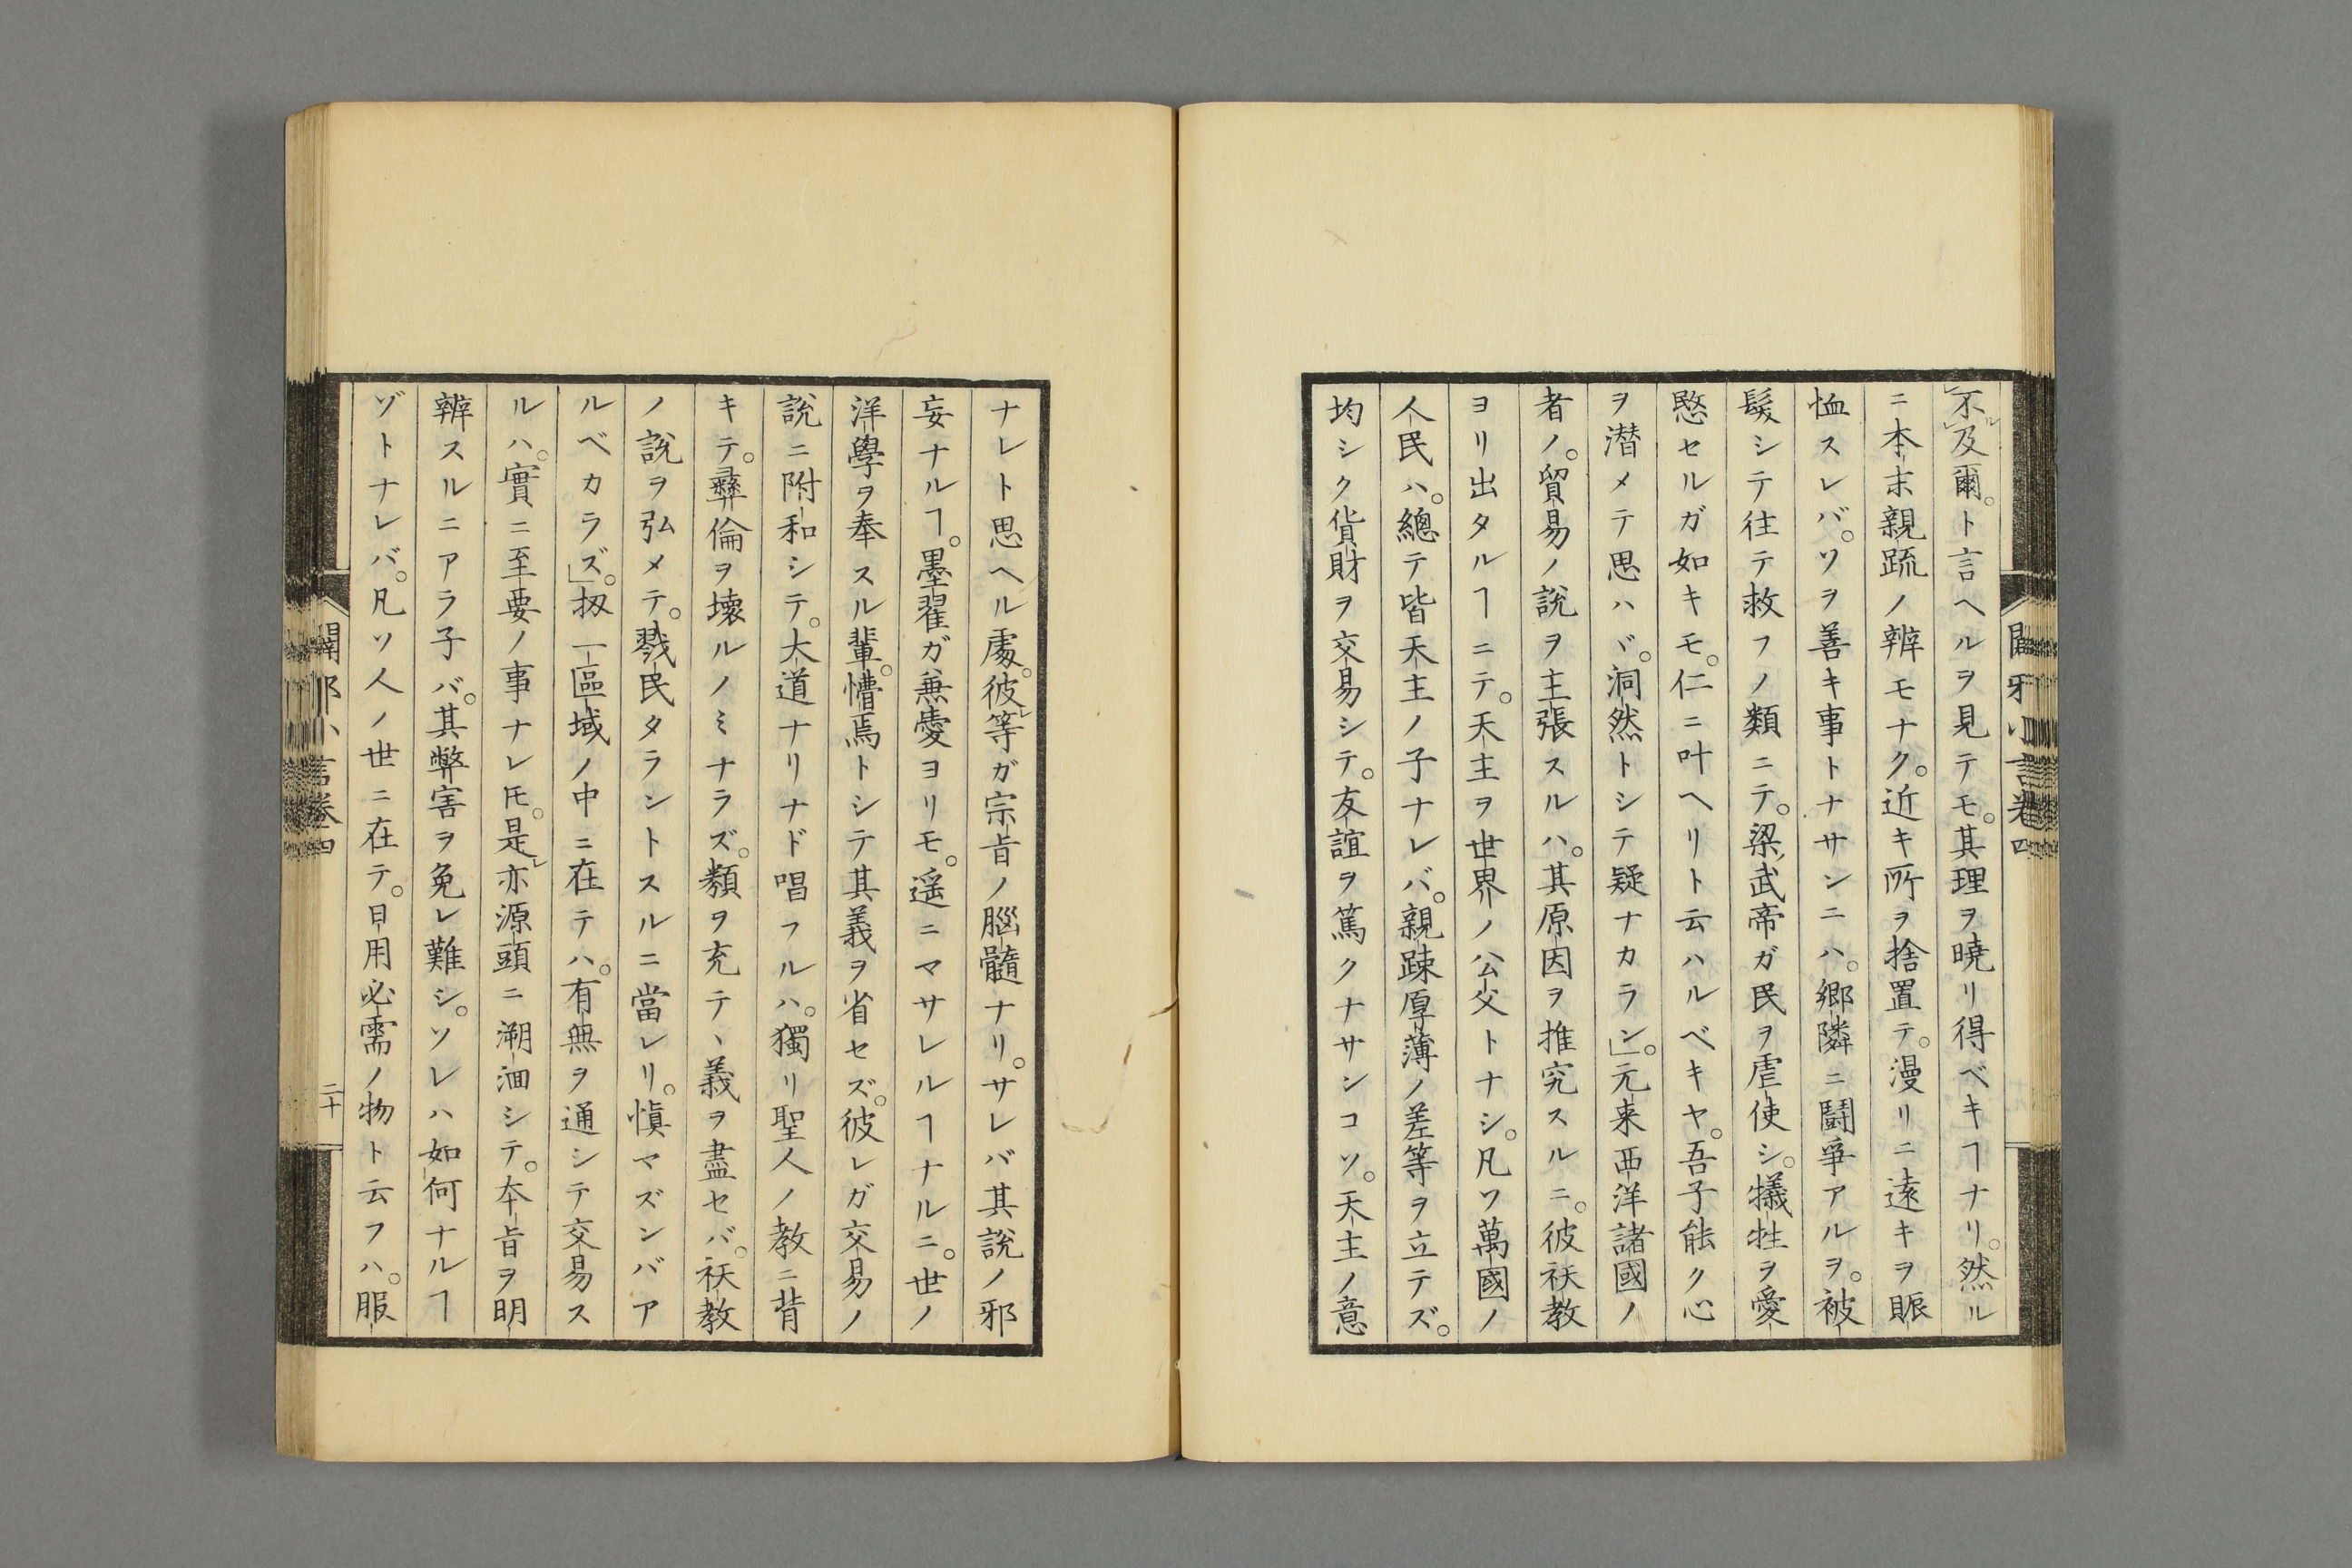 不レ及レ爾。ト言ヘルヲ見テモ。其理ヲ曉リ得ベキヿナリ。然ル
ニ本末親疏ノ辨モナク。近キ所ヲ捨置テ。漫リニ遠キヲ賑
恤スレバ。ソヲ善キ事トナサンニハ。郷隣ニ鬪爭アルヲ。被
髮シテ往テ救フノ類ニテ。梁ノ武帝ガ民ヲ虐使シ。犧牲ヲ愛
愍セルガ如キモ。仁ニ叶ヘリト云ハルベキヤ。吾子能ク心
ヲ潜メテ思ハヾ。洞然トシテ疑ナカラン。」元来西洋諸國ノ
者ノ。貿易ノ説ヲ主張スルハ。其原因ヲ推究スルニ。彼祆教
ヨリ出タルヿニテ。天主ヲ世界ノ公父トナシ。凡ソ萬國ノ
人民ハ。總テ皆天主ノ子ナレバ。親疎厚薄ノ差等ヲ立テズ。
均シク貨財ヲ交易シテ。友誼ヲ篤クナサンコソ。天主ノ意
闢邪小言卷四
ナレト思ヘル處。彼レ等ガ宗旨ノ腦髓ナリ。サレバ其説ノ邪
妄ナルヿ。墨翟ガ兼愛ヨリモ。遥ニマサレルヿナルニ。世ノ
洋學ヲ奉スル輩。懵焉トシテ其義ヲ省セズ。彼レガ交易ノ
説ニ附和シテ。大道ナリナド唱フルハ。獨リ聖人ノ教ニ背
キテ。彛倫ヲ壞ルノミナラズ。類ヲ充テヽ義ヲ盡セバ。祆教
ノ説ヲ弘メテ。戮民タラントスルニ當レリ。愼マズンバア
ルベカラズ。」扨一區域ノ中ニ在テハ。有無ヲ通シテ交易ス
ルハ。實ニ至要ノ事ナレ𪜈。是レ亦源頭ニ溯洄シテ。本旨ヲ明
辨スルニアラ子バ。其弊害ヲ免レ難シ。ソレハ如何ナルヿ
ゾトナレバ。凡ソ人ノ世ニ在テ。日用必需ノ物ト云フハ。服
闢邪小言卷四
二十